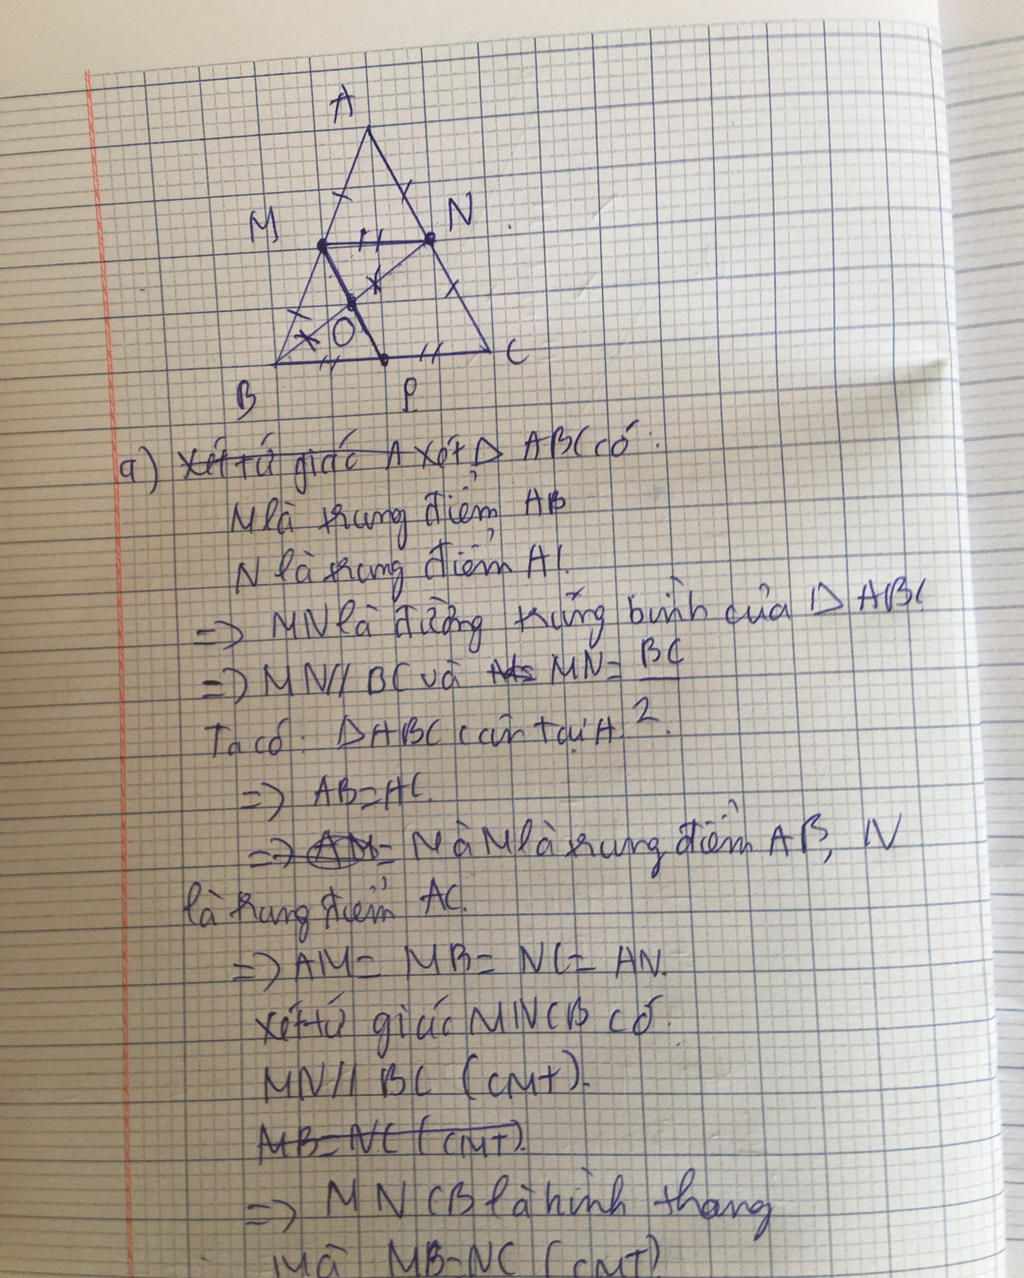 A
M
N
O
B
P
C
a) Xét tứ giác A xét Δ ABC có:
M là trung điểm AB
N là trung điểm AC.
=> MN là đường trung bình của Δ ABC
=> MN // BC và MN = BC/2
Ta có: Δ ABC cân tại A.
=> AB = AC.
=> AM = Mà M là trung điểm AB, N
là trung điểm AC.
=> AM = MB = NC = AN.
Xét tứ giác MNCB có:
MN // BC (CMT).
MB = NC (CMT).
=> MNCB là hình thang
Mà MB = NC (CMT)